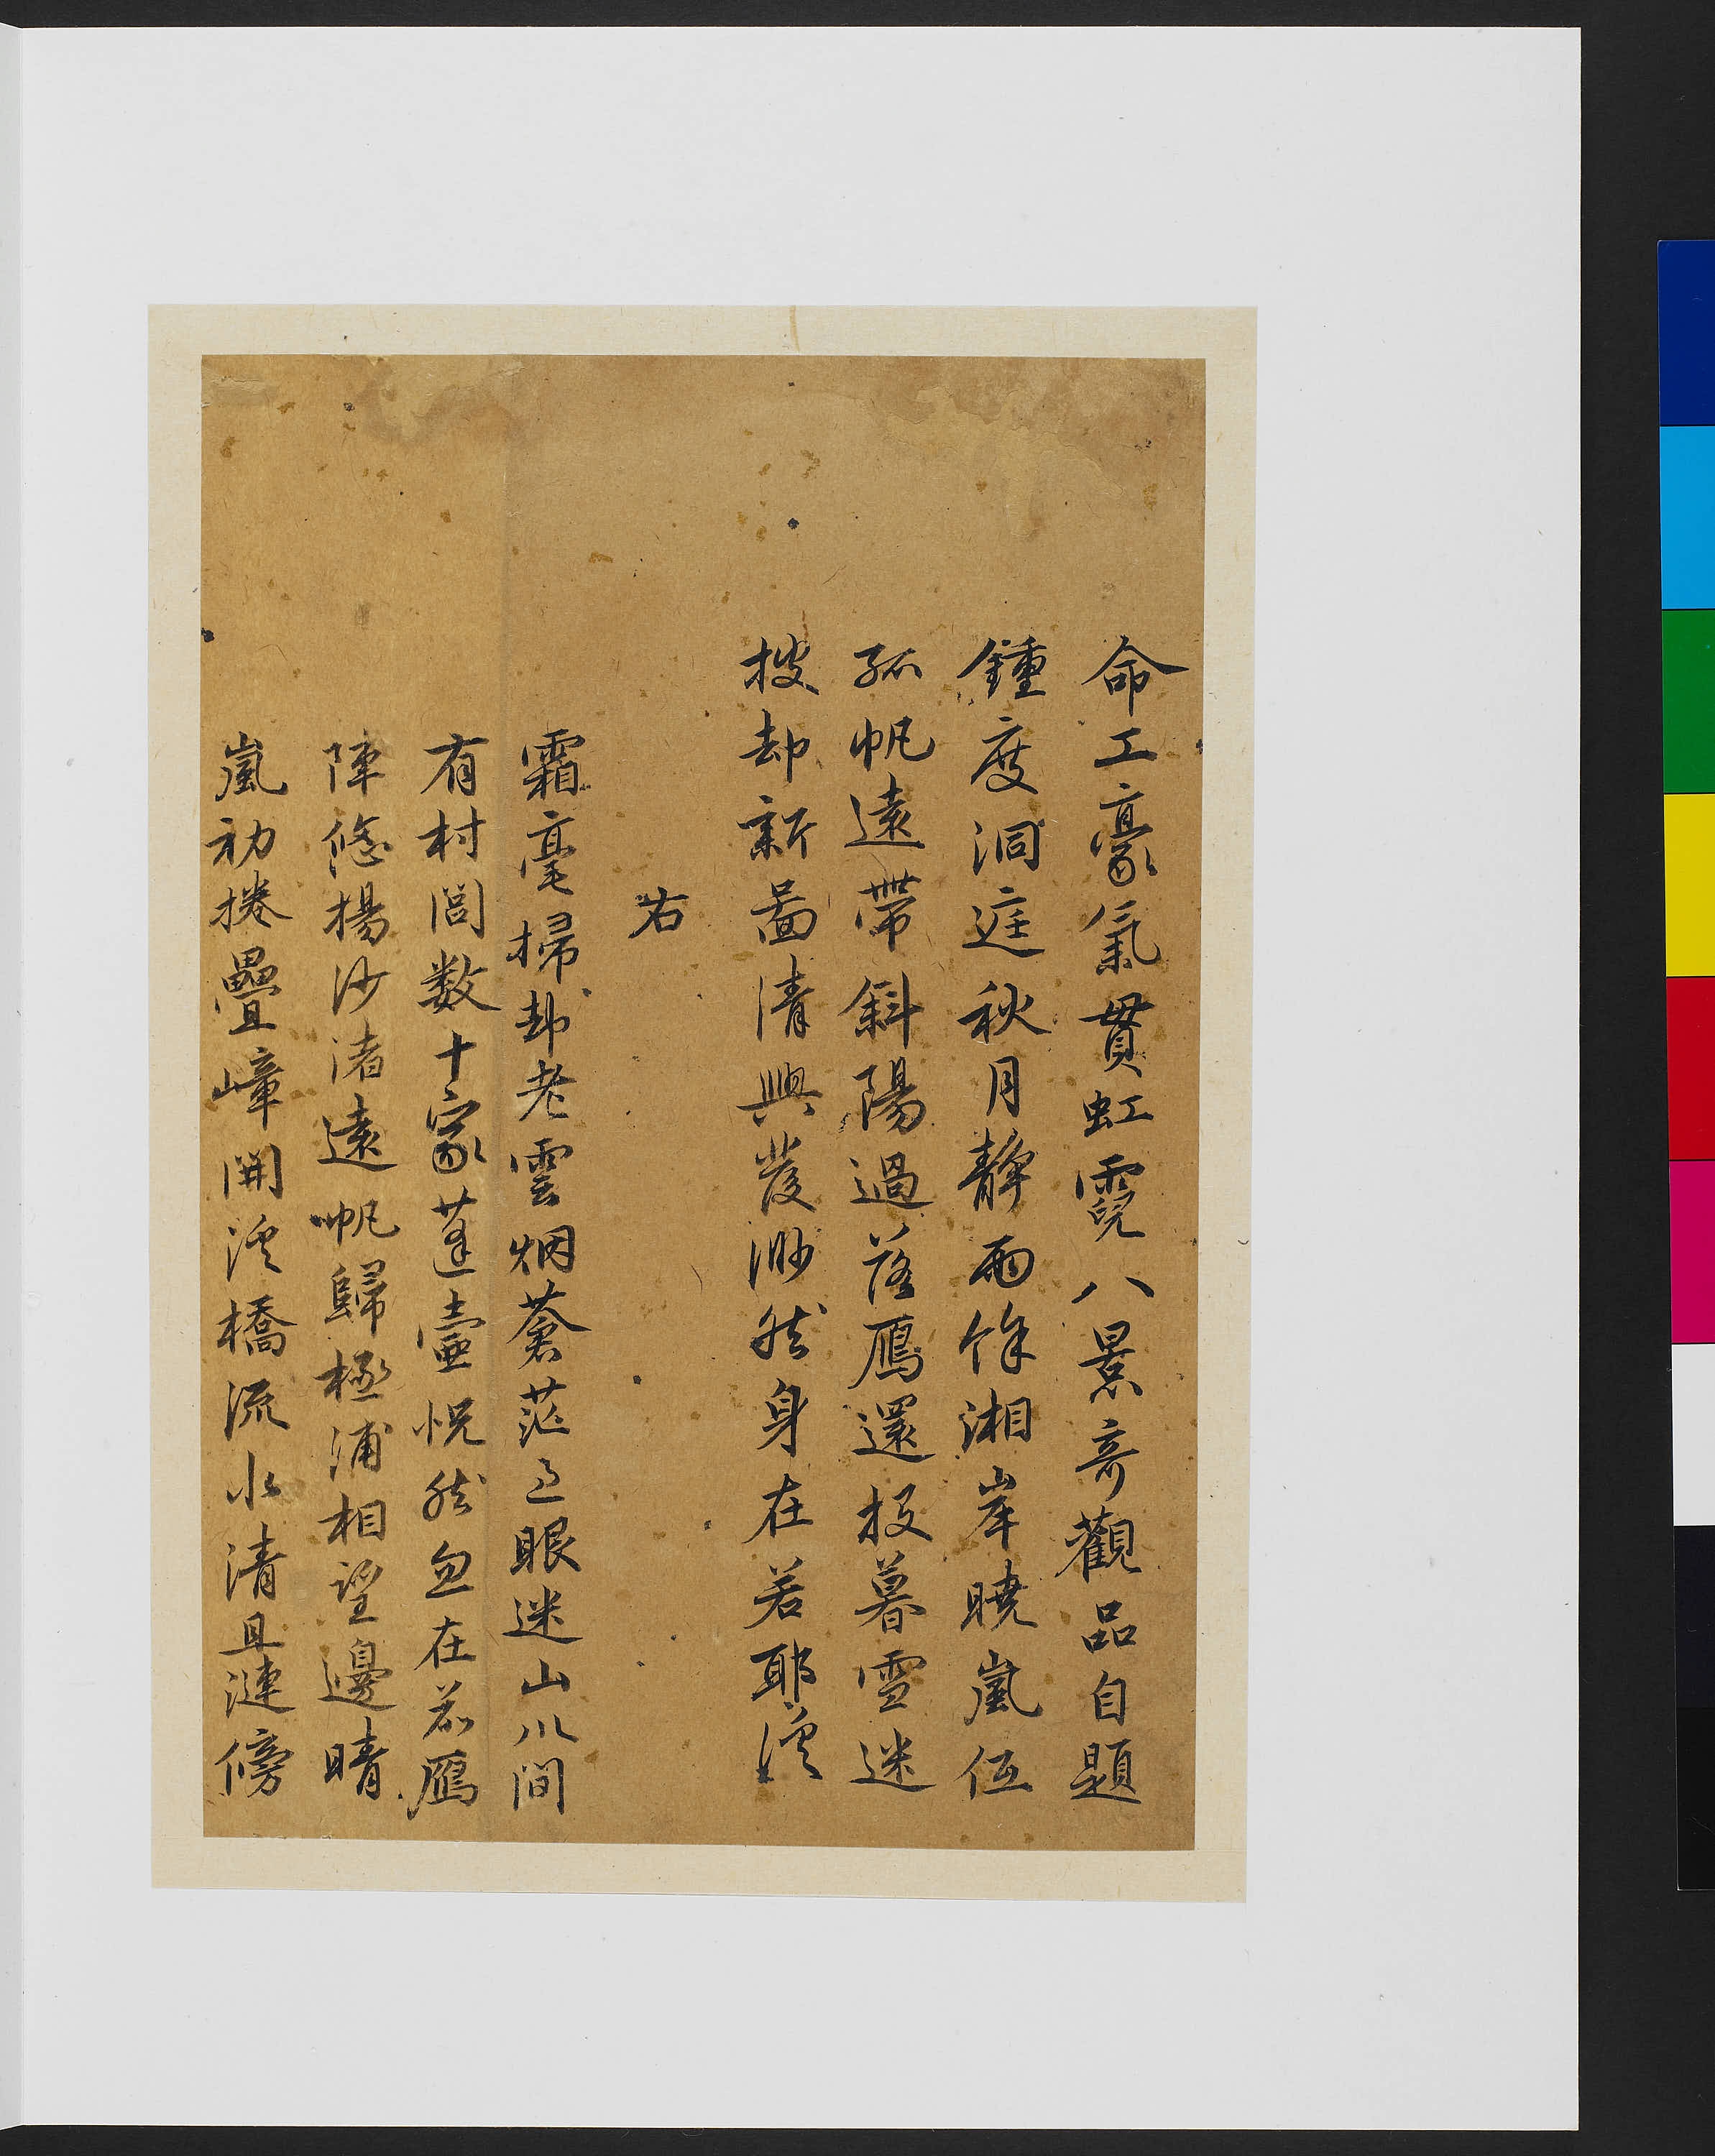 命工豪氣貫虹霓八景奇觀品自題
鍾度洞庭秋月靜雨餘湘岸曉嵐低
孤帆遠帶斜陽過落鴈還投暮雪迷
披却新圖清興發渺然身在若耶溪
右
霜毫掃却老雲烟蒼茫 眼迷山川間
有村閭数十家蓬壺恍然忽在前鴈
陣悠揚沙渚遠帆歸極浦相望邊晴
嵐初捲疊嶂開溪橋流水清且漣傍